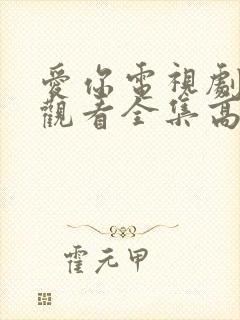 愛你電視劇
觀看全集高
霍元甲